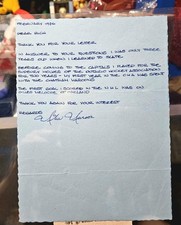 FEBRUARY 1980
DEAR RICK
THANK YOU FOR YOUR LETTER.
IN ANSWER TO YOUR QUESTIONS I WAS ONLY THREE
YEARS OLD WHEN I LEARNED TO SKATE.
BEFORE COMING TO THE CAPITALS I PLAYED FOR THE
WOLVES OF THE ONTARIO HOCKEY ASSOCIATION
FOR TWO YEARS - MY FIRST YEAR IN THE N.H.L WAS SPENT
WITH THE CHATHAM MAROONS
THE FIRST GOAL I SCORED IN THE N.H.L WAS ON
GILLES MELOCHE OF
THANK YOU AGAIN FOR YOUR INTEREST
REGARDS